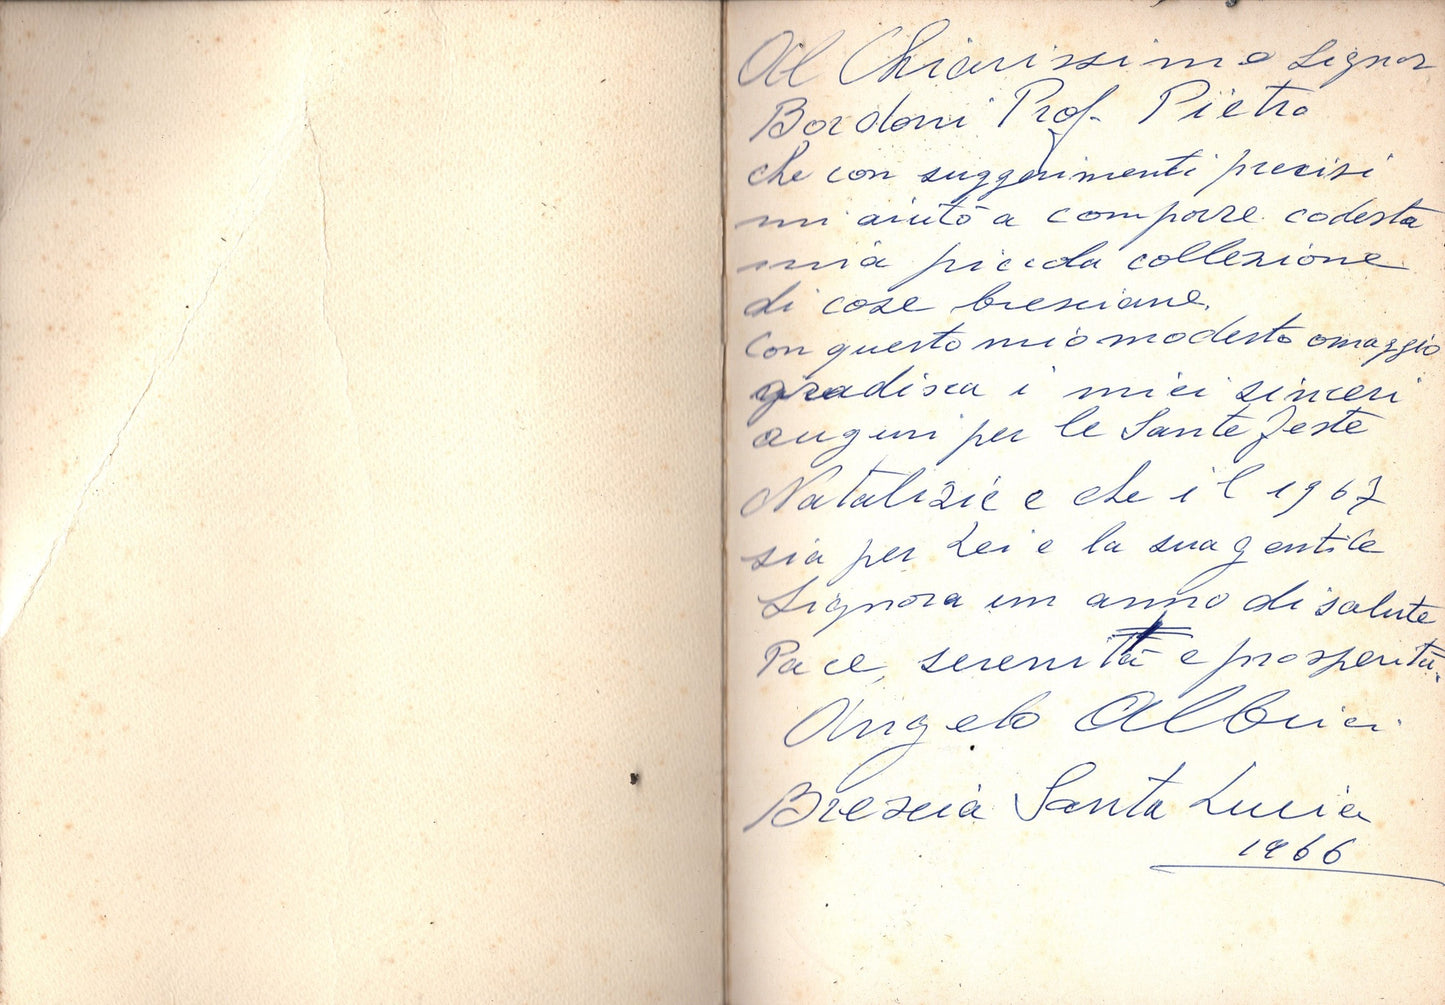 Al Chiarissimo Signor
Bordoni Prof. Pietro
che con suggerimenti precisi
mi aiutò a comporre codesta
mia piccola collezione
di cose bresciane.
Con questo mio modesto omaggio
gradisca i miei sinceri
auguri per le Sante feste
Natalizie e che il 1967
sia per Lei e la sua gentile
Signora un anno di salute
Pace, serenità e prosperità.
Angelo Albrici
Brescia Santa Lucia
1966